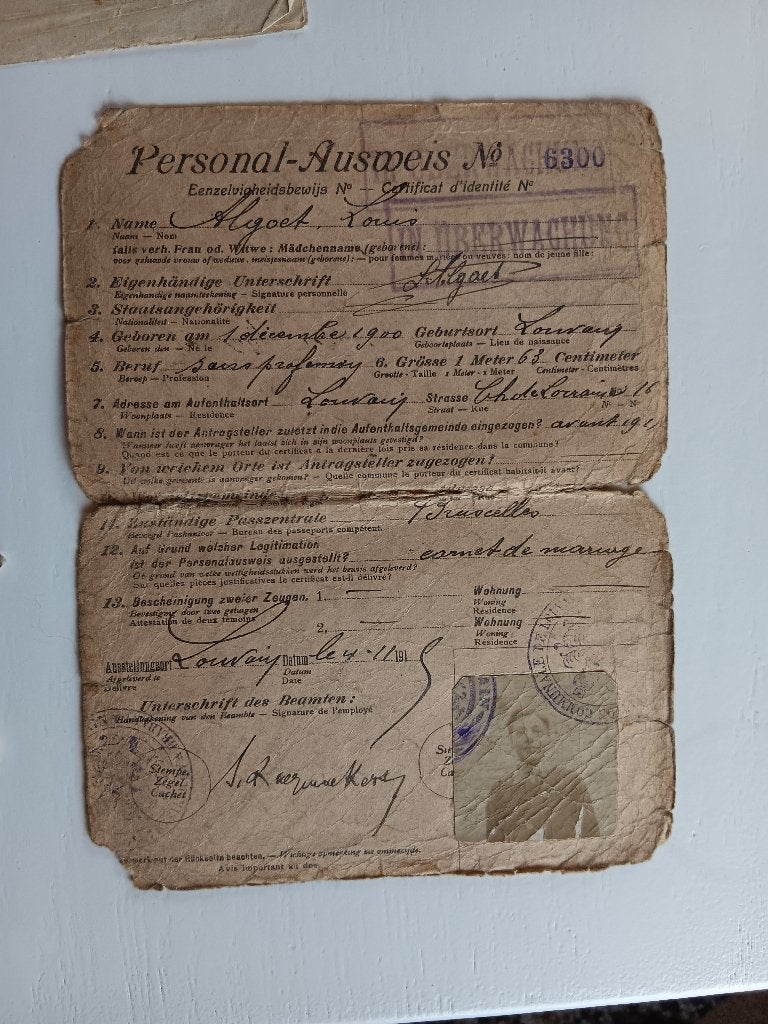 Personal-Ausweis No 6300
Eenzelvigheidsbewijs No — Certificat d'identité No
ÜBERWACHUNG
1. Name Algoet, Louis
Naam — Nom
falls verh. Frau od. Witwe: Mädchenname (geborene):
voor gehuwde vrouw of weduwe, meisjesnaam (geborene): — pour femmes mariées ou veuves: nom de jeune fille:
2. Eigenhändige Unterschrift L. Algoet
Eigenhandige naamteekening — Signature personnelle
3. Staatsangehörigkeit
Nationaliteit — Nationalité
4. Geboren am 1 décembre 1900 Geburtsort Louvain
Geboren den — Né le Geboorteplaats — Lieu de naissance
5. Beruf sans profession 6. Grösse 1 Meter 63 Centimeter
Beroep — Profession Grootte - Taille 1 Meter - 1 Mètre Centimeter - Centimètres
7. Adresse am Aufenthaltsort Louvain Strasse Ch de Lorrain No 16
Woonplaats — Résidence Straat — Rue No — No
8. Wann ist der Antragsteller zuletzt in die Aufenthaltsgemeinde eingezogen? avant 191
Wanneer heeft aanvrager het laatst zich in zijn woonplaats gevestigd?
Quand est ce que le porteur du certificat a la dernière fois pris sa résidence dans la commune?
9. Von welchem Orte ist Antragsteller zugezogen?
Uit welke gemeente is aanvrager gekomen? — Quelle commune le porteur du certificat habitait-il avant?
11. Zuständige Passzentrale Bruxelles
Bevoegd Paskantoor — Bureau des passeports compétent.
12. Auf Grund welcher Legitimation carnet de mariage
ist der Personalausweis ausgestellt?
Op grond van welke wettigheidsstukken werd het bewijs afgeleverd?
Sur quelles pièces justificatives le certificat est-il délivré?
13. Bescheinigung zweier Zeugen. 1. — Wohnung
Bevestiging door twee getuigen Woning
Attestation de deux témoins Résidence
2. — Wohnung
Woning
Résidence
Ausstellungsort Louvain Datum le 4-11 1915
Afgeleverd te Datum
Délivré Date
Unterschrift des Beamten:
Handteekening van den Beambte — Signature de l'employé
Stempel
Zegel
Cachet
Bemerk auf der Rückseite beachten. — Wichtige opmerking zie ommezijde.
Avis important au dos.